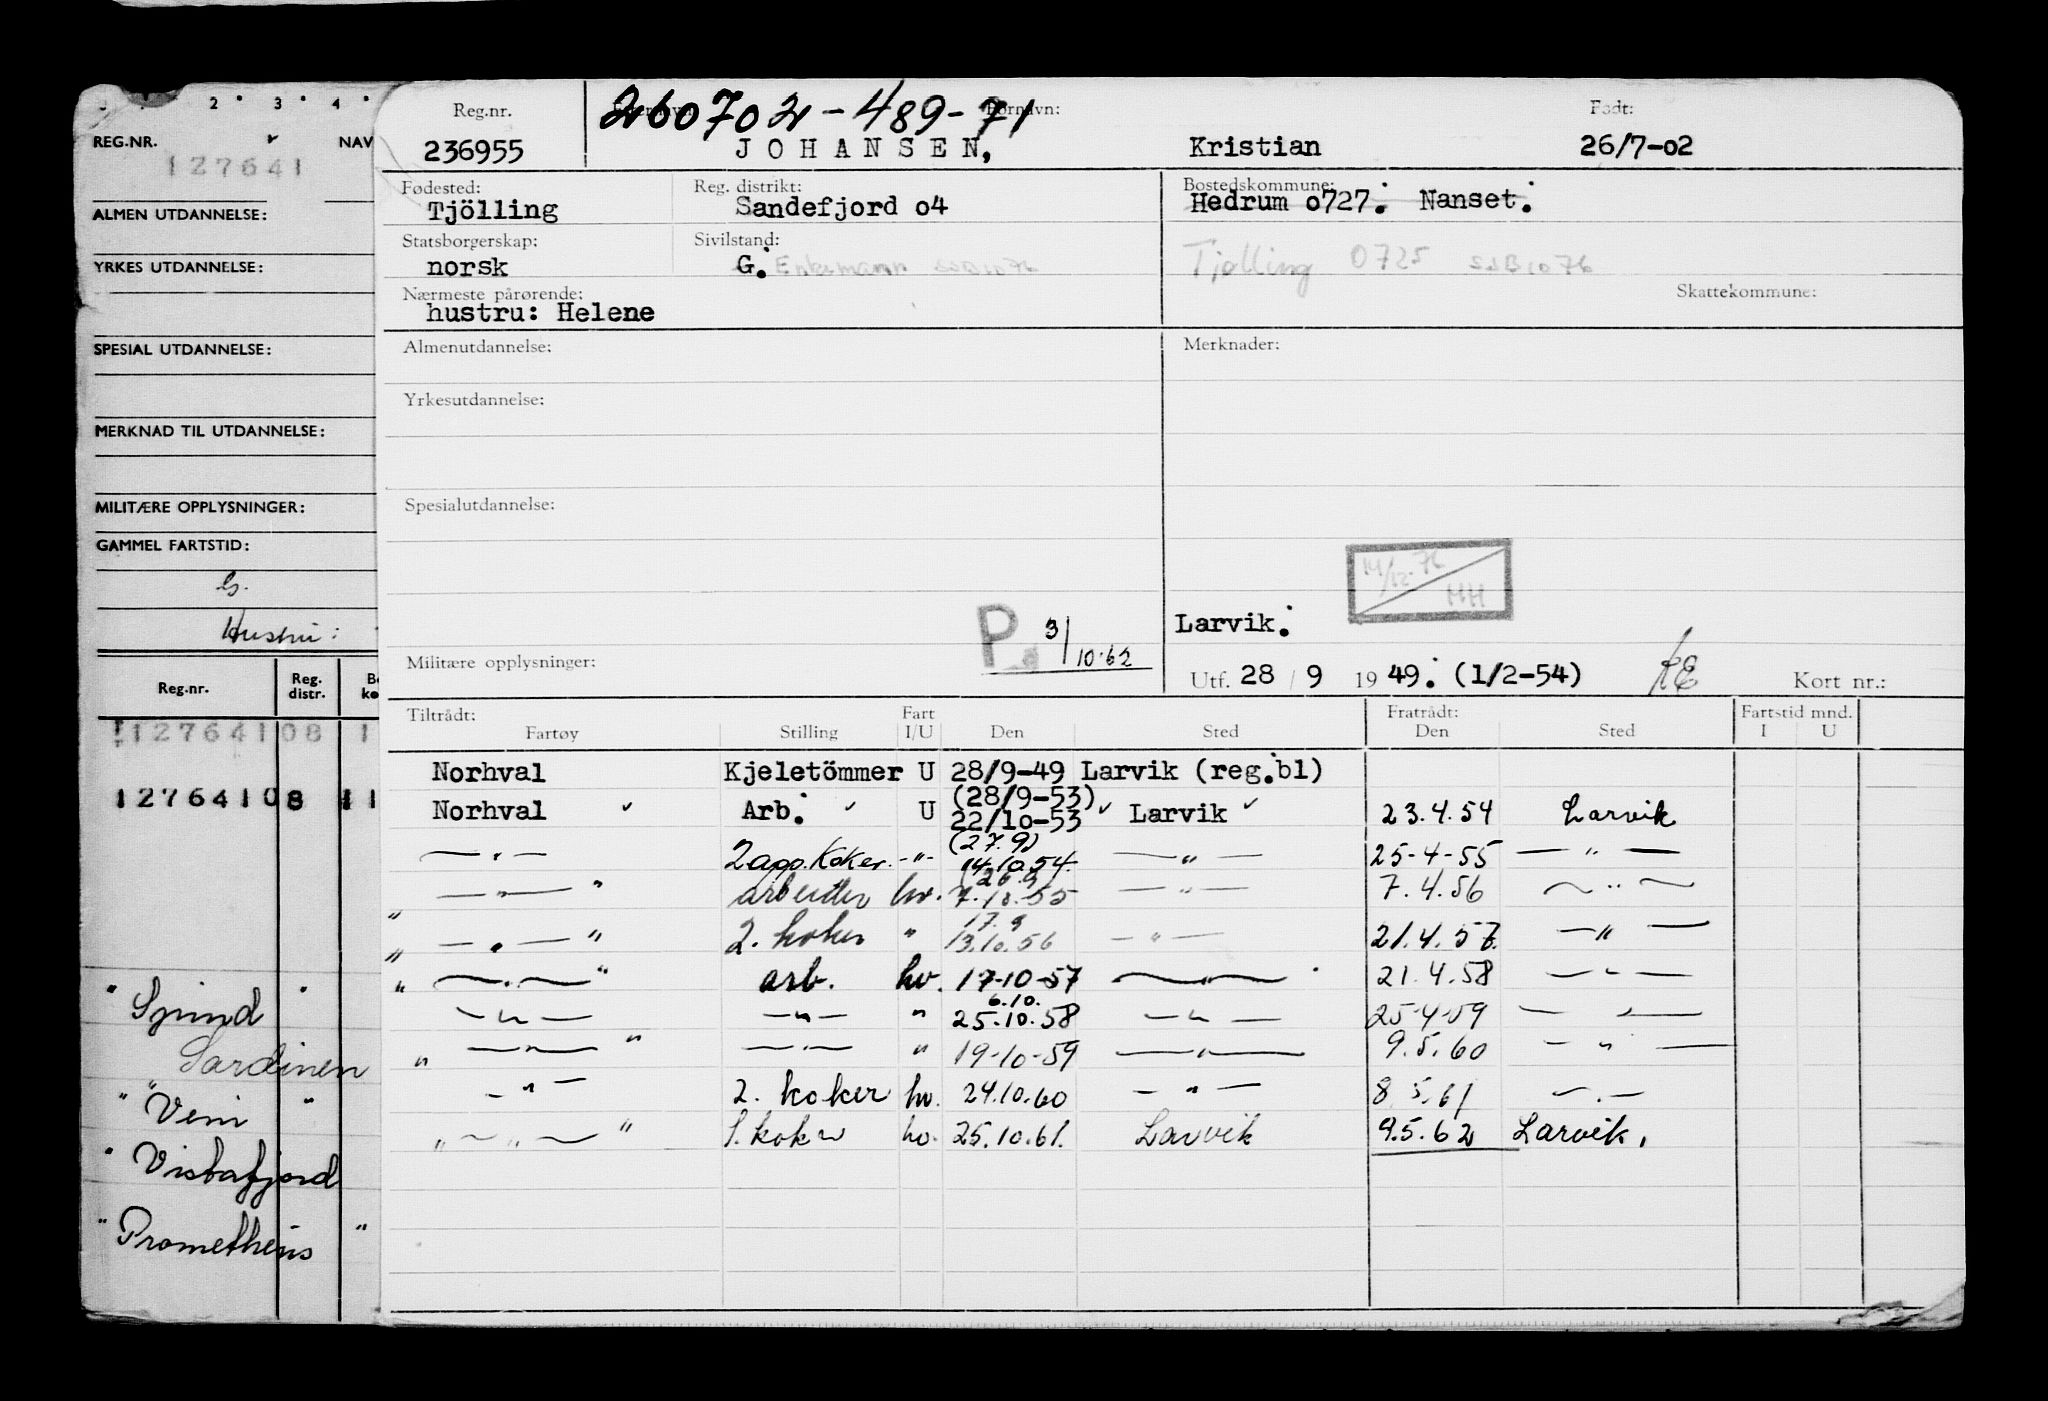 2 3 4
REG.NR. NAV
127641
ALMEN UTDANNELSE:
YRKES UTDANNELSE:
SPESIAL UTDANNELSE:
MERKNAD TIL UTDANNELSE:
MILITÆRE OPPLYSNINGER:
GAMMEL FARTSTID:
G.
Hustru:
Reg.nr. Reg. distr.
127641 08 1
127641 08 11
" Spind "
Sardinen
" Veni "
" Visbafjord
" Prometheus "
Reg.nr. 260702-489-71 Fornavn: Født:
236955 JOHANSEN, Kristian 26/7-02
Fødested: Reg. distrikt: Bostedskommune:
Tjölling Sandefjord o4 Hedrum o727. Nanset.
Statsborgerskap: Sivilstand:
norsk G. Enkemann SSB1076 Tjølling 0725 SSB1076
Nærmeste pårørende: Skattekommune:
hustru: Helene
Almenutdannelse: Merknader:
Yrkesutdannelse:
Spesialutdannelse:
14/12.76 HH
P 3/10.62 Larvik.
Militære opplysninger: Utf. 28/9 1949. (1/2-54) KE Kort nr.:
Tiltrådt: Fart Fratrådt: Fartstid mnd.
Fartøy Stilling I/U Den Sted Den Sted I U
Norhval Kjeletömmer U 28/9-49 Larvik (reg.bl)
(28/9-53)
Norhval Arb. U 22/10-53 Larvik 23.4.54 Larvik
(27.9)
—"— 2 app.Koker. -"- 14.10.54 —"— 25-4-55 —"—
(26.9
" —"— " arbeider hv. 7.10.55 —"— 7.4.56 —"—
17.9
" —"— " 2. koker " 13.10.56 —"— 21.4.57. —"—
" —"— " arb. hv. 17-10-57 —"— 21.4.58 —"—
6.10.
—"— —"— " 25.10.58 —"— 25-4-59 —"—
" —"— " —"— " 19-10-59 —"— 9.5.60 —"—
—"— 2. koker hv. 24.10.60 —"— 8.5.61 —"—
" —"— " 1. koker hv. 25.10.61. Larvik 9.5.62 Larvik.